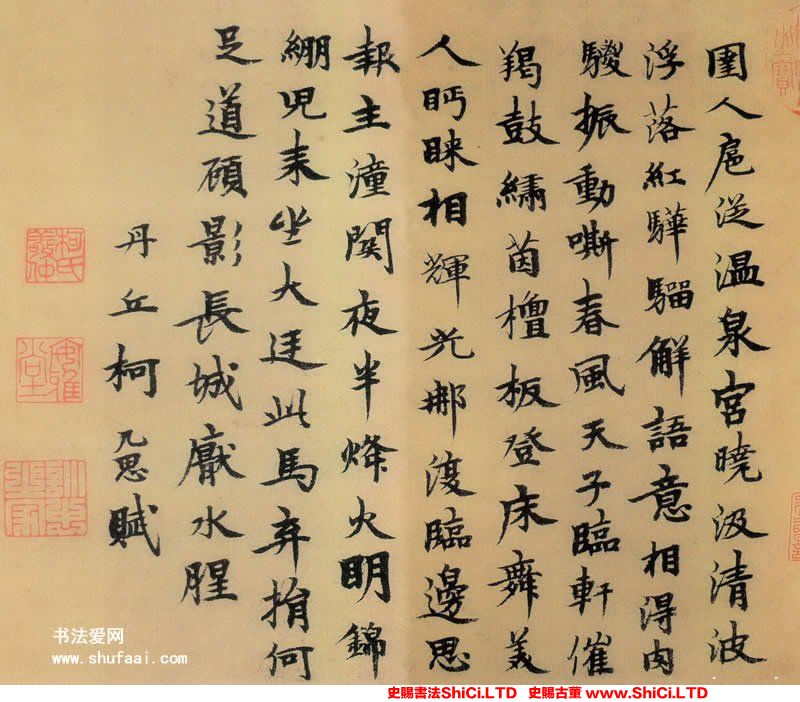 圉人扈從温泉宮曉汲清波
浮落紅驊騮解語意相得肉
騣振動嘶春風天子臨軒催
羯鼓繡茵檀板登床舞美
人眄睞相輝光那復臨邊思
報主潼関夜半烽火明錦
綳兒来坐大廷此馬弃捐何
足道頋影長城猒水腥
丹丘柯九思賦
柯氏敬仲
训忠之家
书法爱网
www.shufaai.com
史賜書法ShiCi.LTD 史賜古董 www.ShiCi.LTD